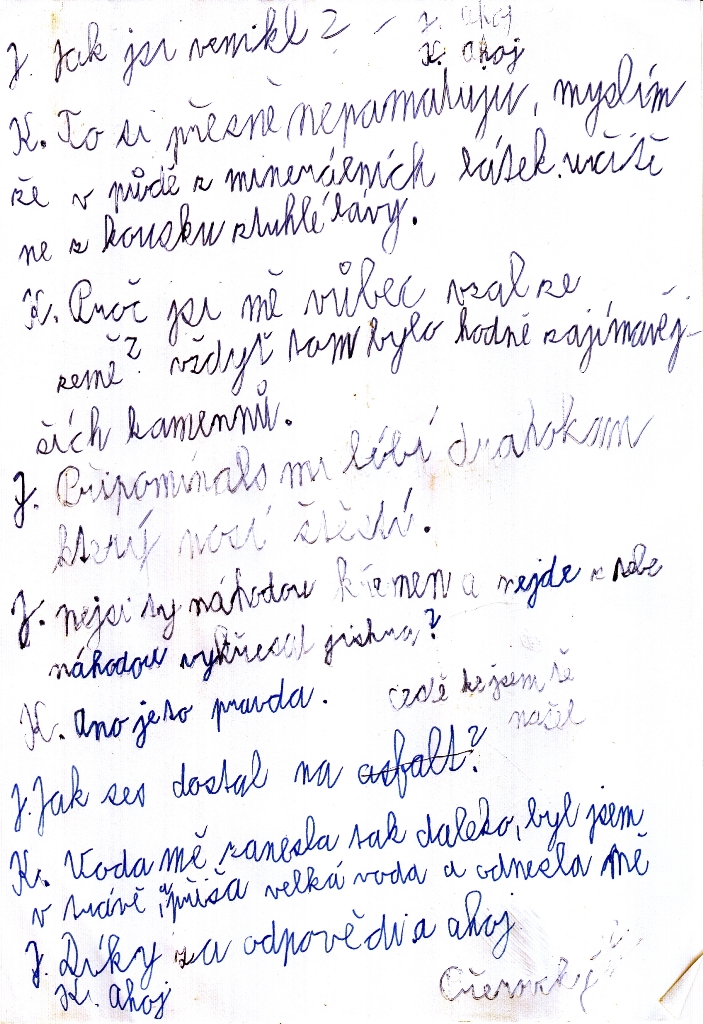 J. Jak jsi vznikl? - J. ahoj
K. ahoj
K. To si přesně nepamatuju, myslím
že v půdě z minerálních látek. určitě
ne z kousku ztuhlé lávy.
K. Proč jsi mě vůbec vzal ze
země? vždyť tam bylo hodně zajímavěj-
ších kamennů.
J. Připomínals mi
který nosí štěstí.
J. nejsi ty náhodou křemen a nejde z tebe
náhodou vykřesat jiskra?
K. Ano je to pravda.
kde jsem tě
našel
J. Jak ses dostal na asfalt?
K. Voda mě zanesla tak daleko, byl jsem
v trávě, přišla velká voda a odnesla mě
J. Díky za odpovědi a ahoj
K. ahoj